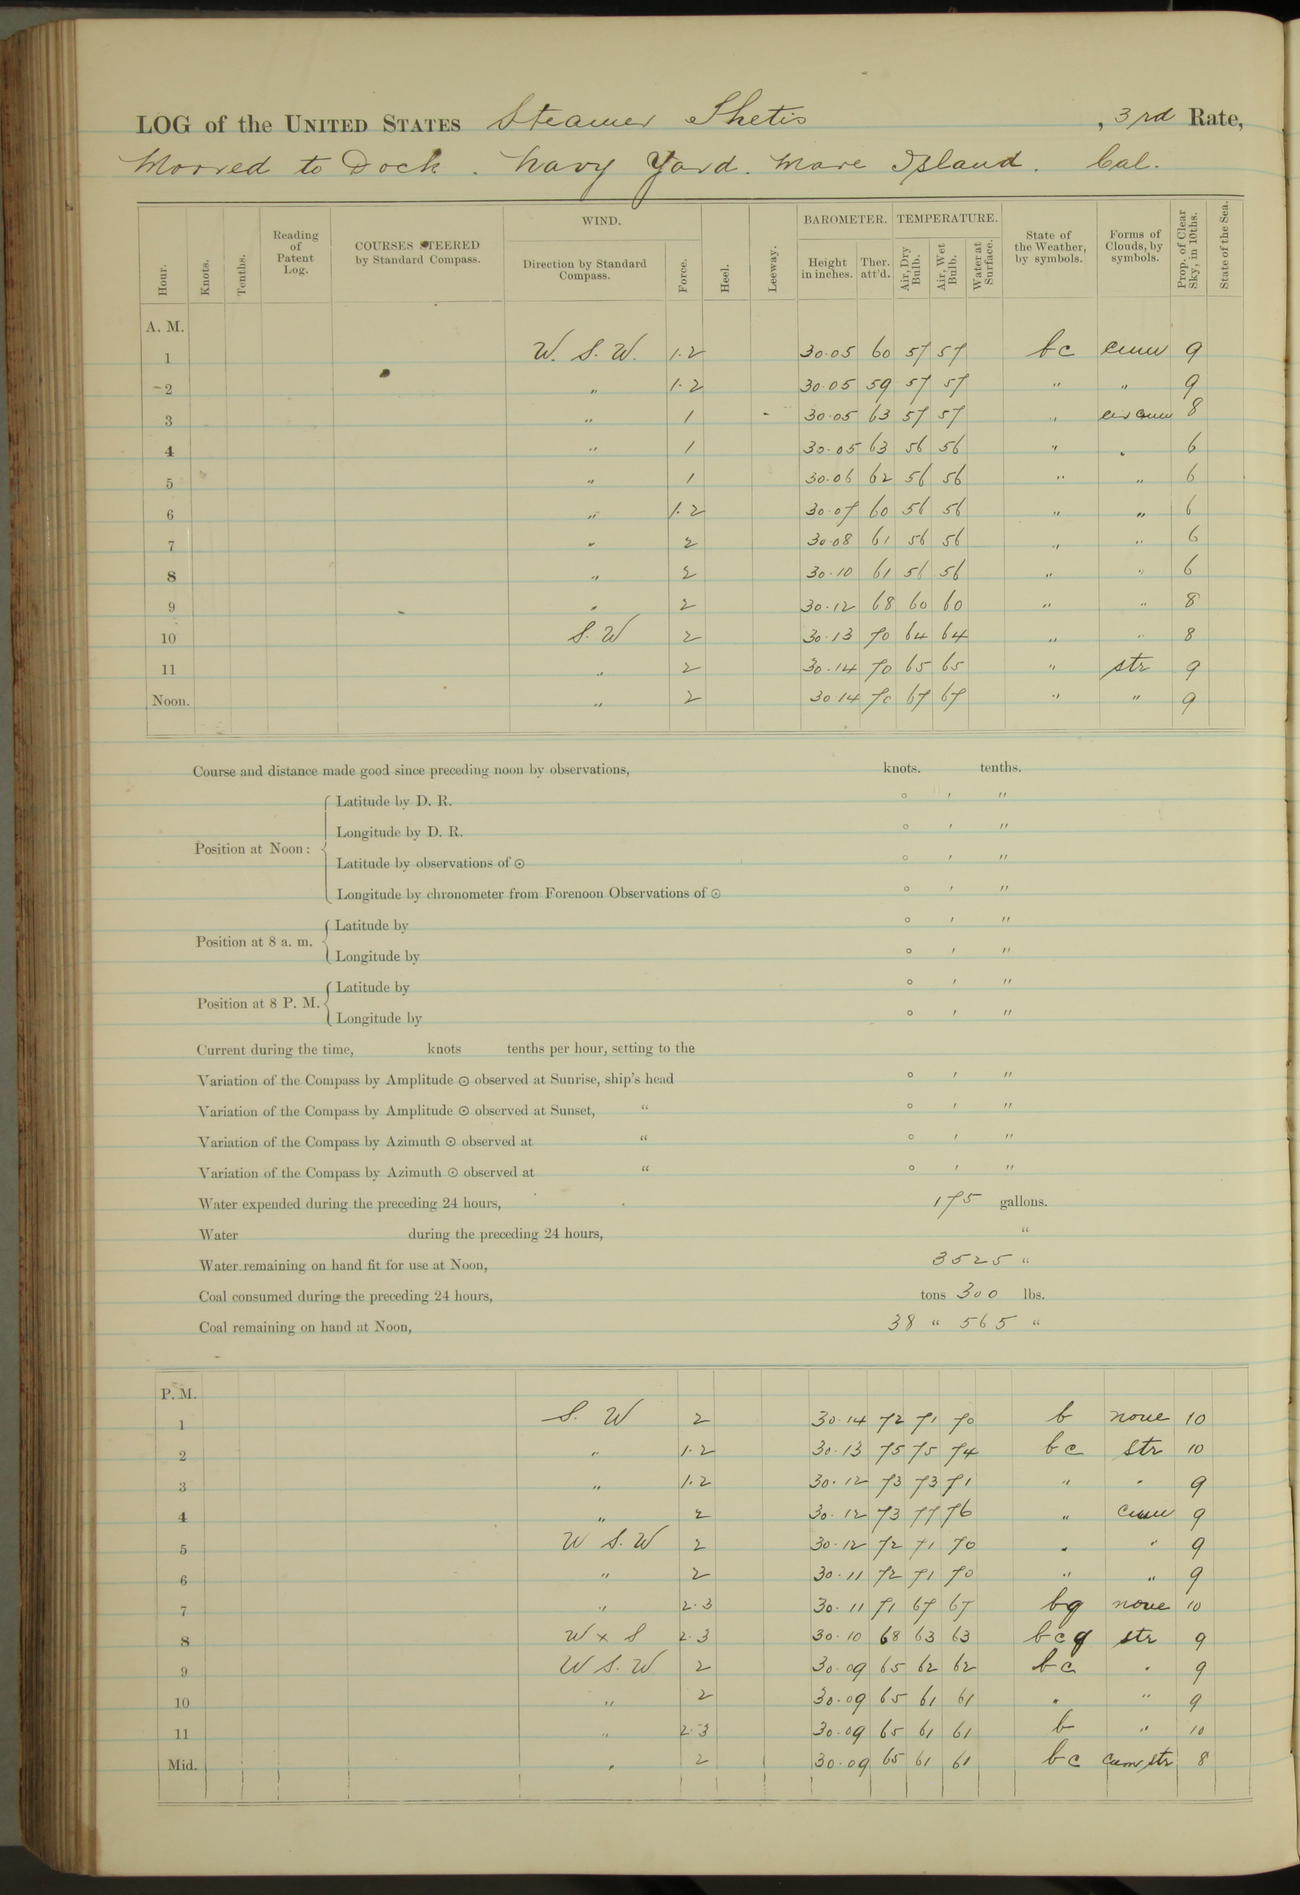 LOG of the UNITED STATES Steamer Thetis, 3rd Rate,
Moored to Dock. Navy Yard. Mare Island. Cal.
Hour. Knots. Tenths. Reading of Patent Log. COURSES STEERED by Standard Compass. WIND. Direction by Standard Compass. Force. Heel. Leeway. BAROMETER. Height in inches. Ther. att'd. TEMPERATURE. Air, Dry Bulb. Air, Wet Bulb. Water at Surface. State of the Weather, by symbols. Forms of Clouds, by symbols. Prop. of Clear Sky, in 10ths. State of the Sea.
A. M.
1 W. S. W. 1.2 30.05 60 57 57 bc cum 9
2 " 1.2 30.05 59 57 57 " " 9
3 " 1 30.05 63 57 57 " cir cum 8
4 " 1 30.05 63 56 56 " " 6
5 " 1 30.06 62 56 56 " " 6
6 " 1.2 30.07 60 56 56 " " 6
7 " 2 30.08 61 56 56 " " 6
8 " 2 30.10 61 56 56 " " 6
9 " 2 30.12 68 60 60 " " 8
10 S. W 2 30.13 70 64 64 " " 8
11 " 2 30.14 70 65 65 " str 9
Noon. " 2 30 14 70 67 67 " " 9
Course and distance made good since preceding noon by observations, knots. tenths.
Position at Noon: Latitude by D. R. ° ' "
Longitude by D. R. ° ' "
Latitude by observations of ⊙ ° ' "
Longitude by chronometer from Forenoon Observations of ⊙ ° ' "
Position at 8 a. m. Latitude by ° ' "
Longitude by ° ' "
Position at 8 P. M. Latitude by ° ' "
Longitude by ° ' "
Current during the time, knots tenths per hour, setting to the
Variation of the Compass by Amplitude ⊙ observed at Sunrise, ship's head ° ' "
Variation of the Compass by Amplitude ⊙ observed at Sunset, " ° ' "
Variation of the Compass by Azimuth ⊙ observed at " ° ' "
Variation of the Compass by Azimuth ⊙ observed at " ° ' "
Water expended during the preceding 24 hours, 175 gallons.
Water during the preceding 24 hours, "
Water remaining on hand fit for use at Noon, 3525 "
Coal consumed during the preceding 24 hours, tons 300 lbs.
Coal remaining on hand at Noon, 38 " 565 "
P. M.
1 S. W 2 30.14 72 71 70 b none 10
2 " 1.2 30.13 75 75 74 bc str 10
3 " 1.2 30.12 73 73 71 " " 9
4 " 2 30.12 73 77 76 " cum 9
5 W S. W 2 30.12 72 71 70 " " 9
6 " 2 30.11 72 71 70 " " 9
7 " 2.3 30.11 71 67 67 bq none 10
8 W x S 2.3 30.10 68 63 63 bcq str 9
9 W S. W 2 30.09 65 62 62 bc " 9
10 " 2 30.09 65 61 61 " " 9
11 " 2.3 30.09 65 61 61 b " 10
Mid. " 2 30.09 65 61 61 bc cum str 8